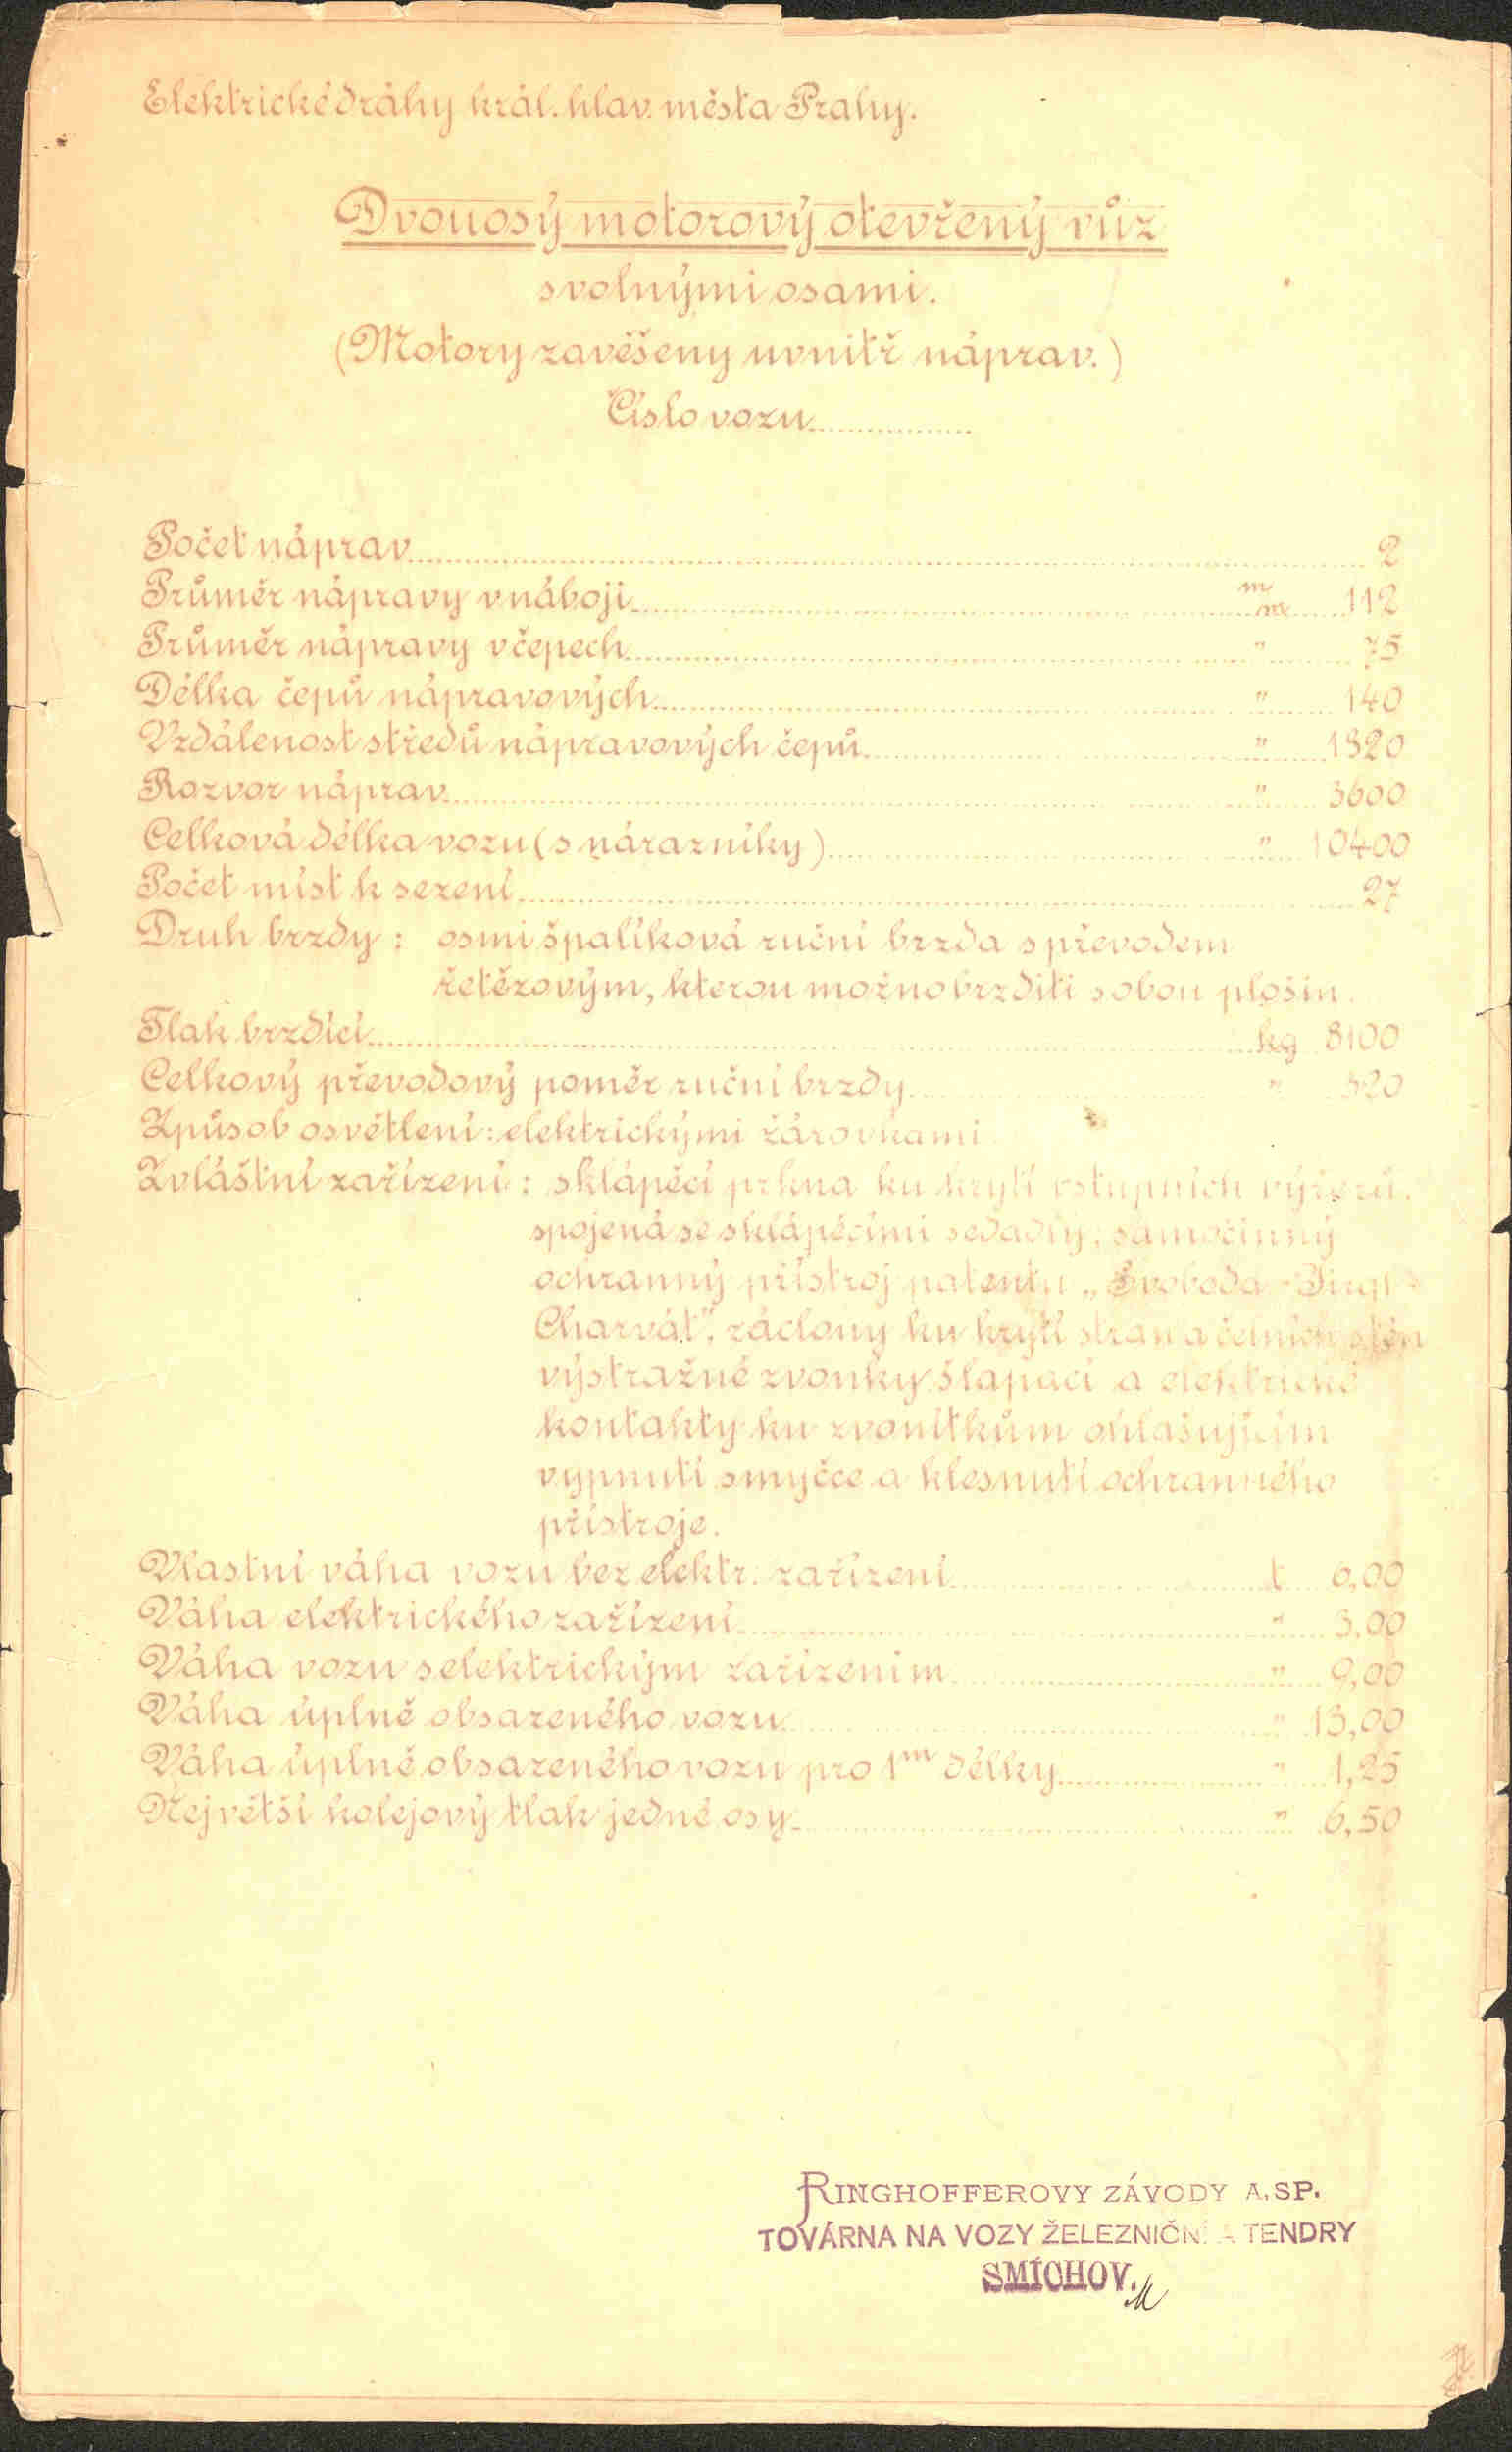 Elektrické dráhy král. hlav. města Prahy.
Dvouosý motorový otevřený vůz
s volnými osami.
(Motory zavěšeny uvnitř náprav.)
Číslo vozu
Počet náprav 2
Průměr nápravy v náboji m/m 112
Průměr nápravy v čepech " 75
Délka čepů nápravových " 140
Vzdálenost středů nápravových čepů " 1820
Rozvor náprav " 3600
Celková délka vozu (s nárazníky) " 10400
Počet míst k sezení 27
Druh brzdy: osmišpalíková ruční brzda s převodem
řetězovým, kterou možno brzditi s obou plošin.
Tlak brzdící kg 8100
Celkový převodový poměr ruční brzdy "
Způsob osvětlení: elektrickými žárovkami
Zvláštní zařízení: sklápěcí prkna ku krytí vstupních výřezů,
spojená se sklápěcími sedadly; samočinný
ochranný přístroj patentu „Svoboda -
Charvát", záclony ku krytí stran a čelních stěn
výstražné zvonky šlapací a elektrické
kontakty ku zvonítkům ohlašujícím
vypnutí smyčce a klesnutí ochranného
přístroje.
Vlastní váha vozu bez elektr. zařízení t 6,00
Váha elektrického zařízení " 3,00
Váha vozu s elektrickým zařízením " 9,00
Váha úplně obsazeného vozu " 13,00
Váha úplně obsazeného vozu pro 1m délky " 1,25
Největší kolejový tlak jedné osy " 6,50
RINGHOFFEROVY ZÁVODY A. SP.
TOVÁRNA NA VOZY ŽELEZNIČNÍ A TENDRY
SMÍCHOV.